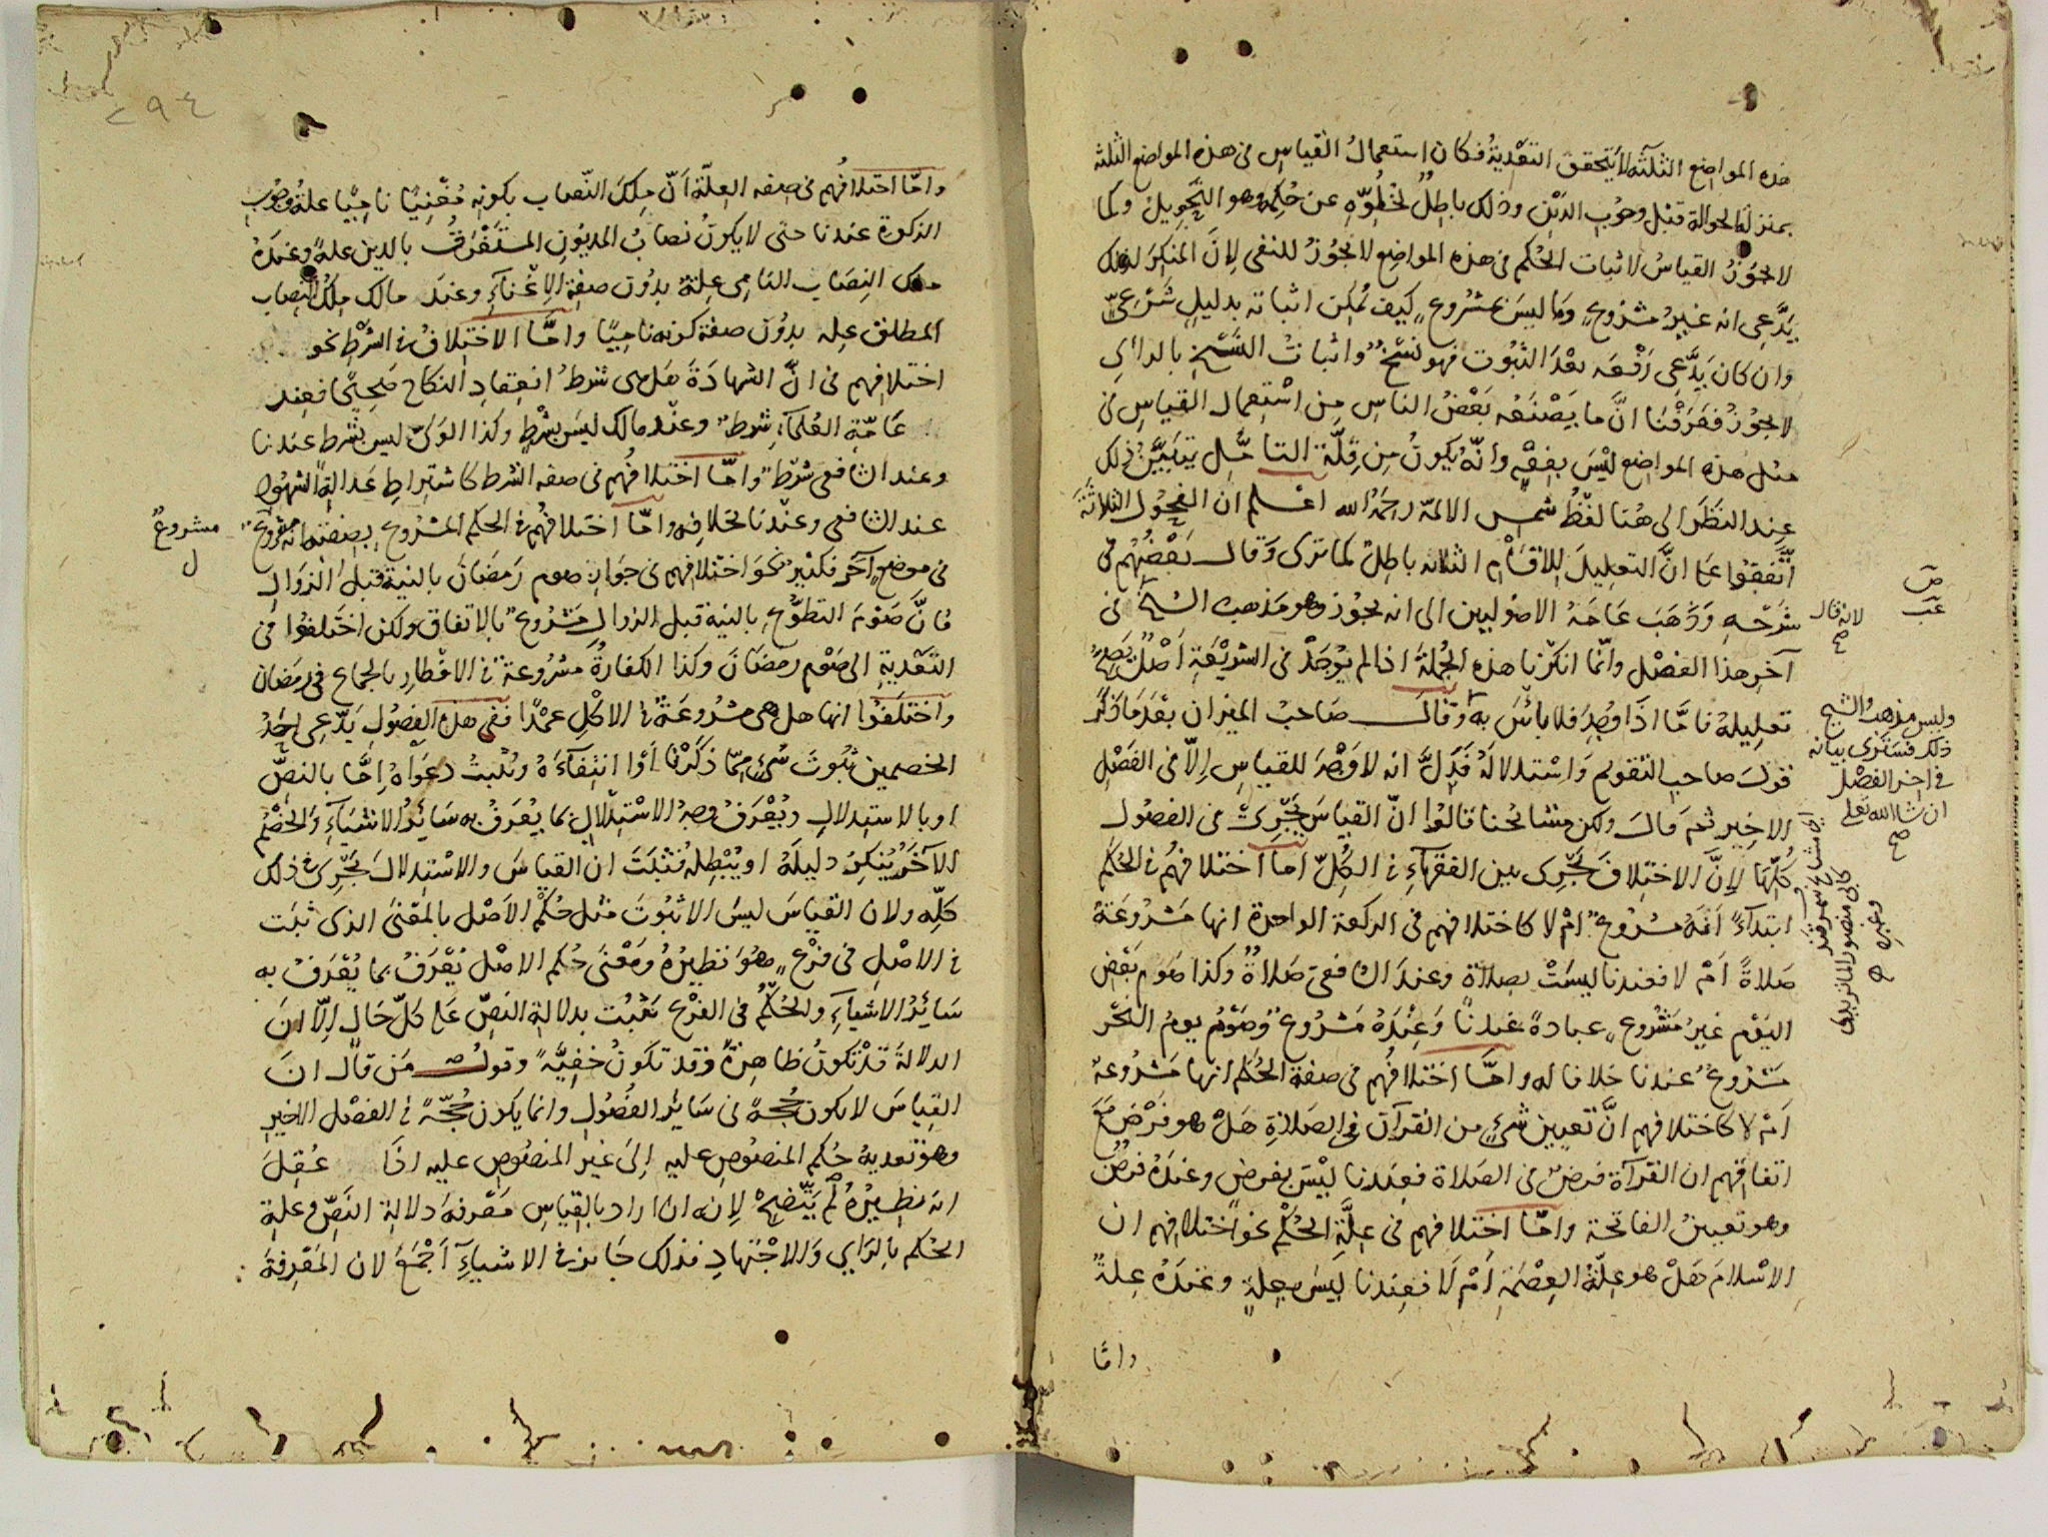 هذه المواضع الثلثة لا يتحقق التعدية فكان استعمال القياس في هذه المواضع الثلثة
بمنزلة الحوالة قبل وجوب الدين وذلك باطل لخلوّه عن حكمه وهو التحويل وكما
لا يجوز القياس لاثبات الحكم في هذه المواضع لا يجوز للنفي لانّ المنكر لذلك
يدّعي انه غير مشروع وما ليس بمشروع كيف يمكن اثباته بدليل شرعيّ
وان كان يدّعي رفعه بعد الثبوت فهو نسخ واثبات النسخ بالرأي
لا يجوز فعرفنا انّ ما يصنعه بعض الناس من استعمال القياس في
مثل هذه المواضع ليس بفقه وانّه يكون من قلّة التأمّل يتبيّن ذلك
عند النظر الى هنا لفظ شمس الائمة رحمه الله اعلم ان الفحول الثلاثة
اتّفقوا على انّ التعليل للاقسام الثلاثه باطل كما ترى وقال بعضهم في
شرحه وذهب عامّة الاصوليين الى انه يجوز وهو مذهب الشيخ في
آخر هذا الفصل وانّما انكرنا هذه الجملة اذا لم يوجد في الشريعة اصل يصحّ
تعليله فامّا اذا وجد فلا بأس به وقال صاحب الميزان بعد ما ذكر
قول صاحب التقويم واستدلاله فدلّ انه لا وجه للقياس الّا في الفصل
الاخير ثم قال ولكن مشائخنا قالوا انّ القياس يجري في الفصول
كلّها لانّ الاختلاف يجري بين الفقهاء في الكلّ اما اختلافهم في الحكم
ابتداءً انّه مشروع ام لا كاختلافهم في الركعة الواحدة انها مشروعة
صلاةً ام لا فعندنا ليست بصلاة وعند الشافعي صلاة وكذا صوم بعض
اليوم غير مشروع عبادةً عندنا وعنده مشروع وصوم يوم النحر
مشروع عندنا خلافا له وامّا اختلافهم في صفة الحكم انها مشروعة
ام لا كاختلافهم انّ تعيين شيء من القرآن في الصلاة هل هو فرض مع
اتفاقهم ان القرآة فرض في الصلاة فعندنا ليس بفرض وعنده فرض
وهو تعيين الفاتحة وامّا اختلافهم في علّة الحكم نحو اختلافهم ان
الاسلام هل هو علّة العصمة ام لا فعندنا ليس بعلة وعنده علة
وامّا
لانه قال
صح
وليس مذهب الشيخ
ذلك فسترى بيانه
في اخر الفصل
ان شا الله تعلى
صح
اي مشايخ سمرقند
كابي منصور الماتريدي
وغيره
٢٩٤
وامّا اختلافهم في صفه العلّة انّ ملك النّصاب بكونه مغنيًا ناميًا علة وجوب
الزكوة عندنا حتى لا يكون نصاب المديون المستغرق بالدين علة وعنده
ملك النصاب النامي علة بدون صفة الاغناء وعند مالك ملك النصاب
المطلق عله بدون صفة كونه ناميًا وامّا الاختلاف في الشرط نحو
اختلافهم في انّ الشهادة هل هي شرط انعقاد النكاح صحيحًا فعند
عامّة العلماء شرط وعند مالك ليس بشرط وكذا الوليّ ليس بشرط عندنا
وعند الشافعي شرط وامّا اختلافهم في صفه الشرط كاشتراط عدالة الشهود
عند الشافعي وعندنا بخلافه وامّا اختلافهم في الحكم المشروع بصفته انه مشروع
مشروع
ل
في موضع آخر فكثير نحو اختلافهم في جواز صوم رمضان بالنية قبل الزوال
فانّ صوم التطوّع بالنية قبل الزوال مشروع بالاتفاق ولكن اختلفوا في
التعدية الى صوم رمضان وكذا الكفارة مشروعة في الافطار بالجماع في رمضان
واختلفوا انها هل هي مشروعة في الاكل عمدًا ففي هذه الفصول يدّعي احد
الخصمين ثبوت شيء ممّا ذكرنا او انتفاءه ويثبت دعواه امّا بالنصّ
او بالاستدلال ويعرف وجه الاستدلال بما يعرف به سائر الاشياء والخصم
الآخر ينكر دليله او يبطله فثبت ان القياس والاستدلال يجري في ذلك
كلّه ولان القياس ليس الا ثبوت مثل حكم الاصل بالمعنى الذي ثبت
في الاصل في فرع هو نظيره ومعنى حكم الاصل يعرف بما يعرف به
سائر الاشياء والحكم في الفرع يثبت بدلالة النصّ على كلّ حال الّا انّ
الدلالة قد تكون ظاهرة وقد تكون خفيّة وقول من قال ان
القياس لا يكون حجة في سائر الفصول وانما يكون حجّة في الفصل الاخير
وهو تعدية حكم المنصوص عليه الى غير المنصوص عليه اذا عقل
انه نظيره لم يتّضح لانه ان اراد بالقياس معرفة دلالة النصّ وعلة
الحكم بالراي والاجتهاد فذلك جائز في الاشياء اجمع لان المعرفة